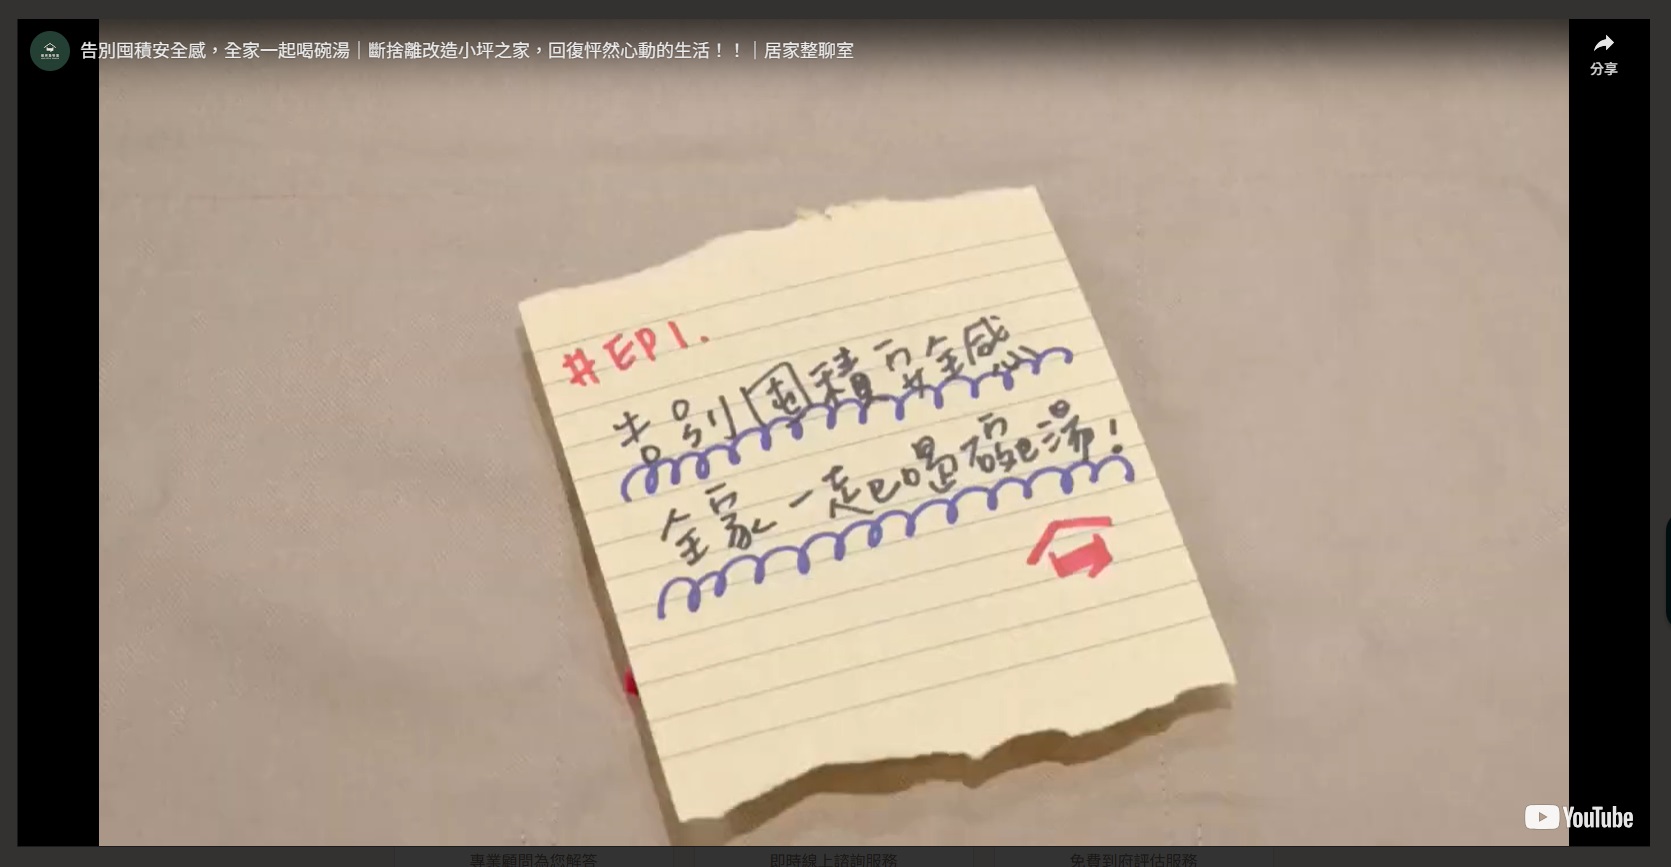 告別囤積安全感，全家一起喝碗湯｜斷捨離改造小坪之家，回復怦然心動的生活！！｜居家整聊室
分享
#EP1.
告別囤積安全感
全家一起喝碗湯!
YouTube
專業顧問為您解答
即時線上諮詢服務
免費到府評估服務